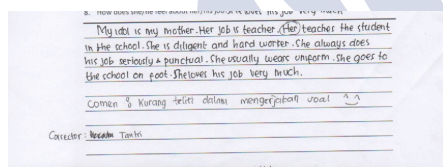 8. How does she/he feel about her/his job? loves his job very much
My idol is my mother. Her job is teacher. (Her) teaches the student
in the school. She is diligent and hard worker. She always does
his job seriously & punctual. She usually wears uniform. She goes to
the school on foot. She loves his job very much.
Comen : Kurang teliti dalam mengerjakan soal ^_^
Corrector : Tantri